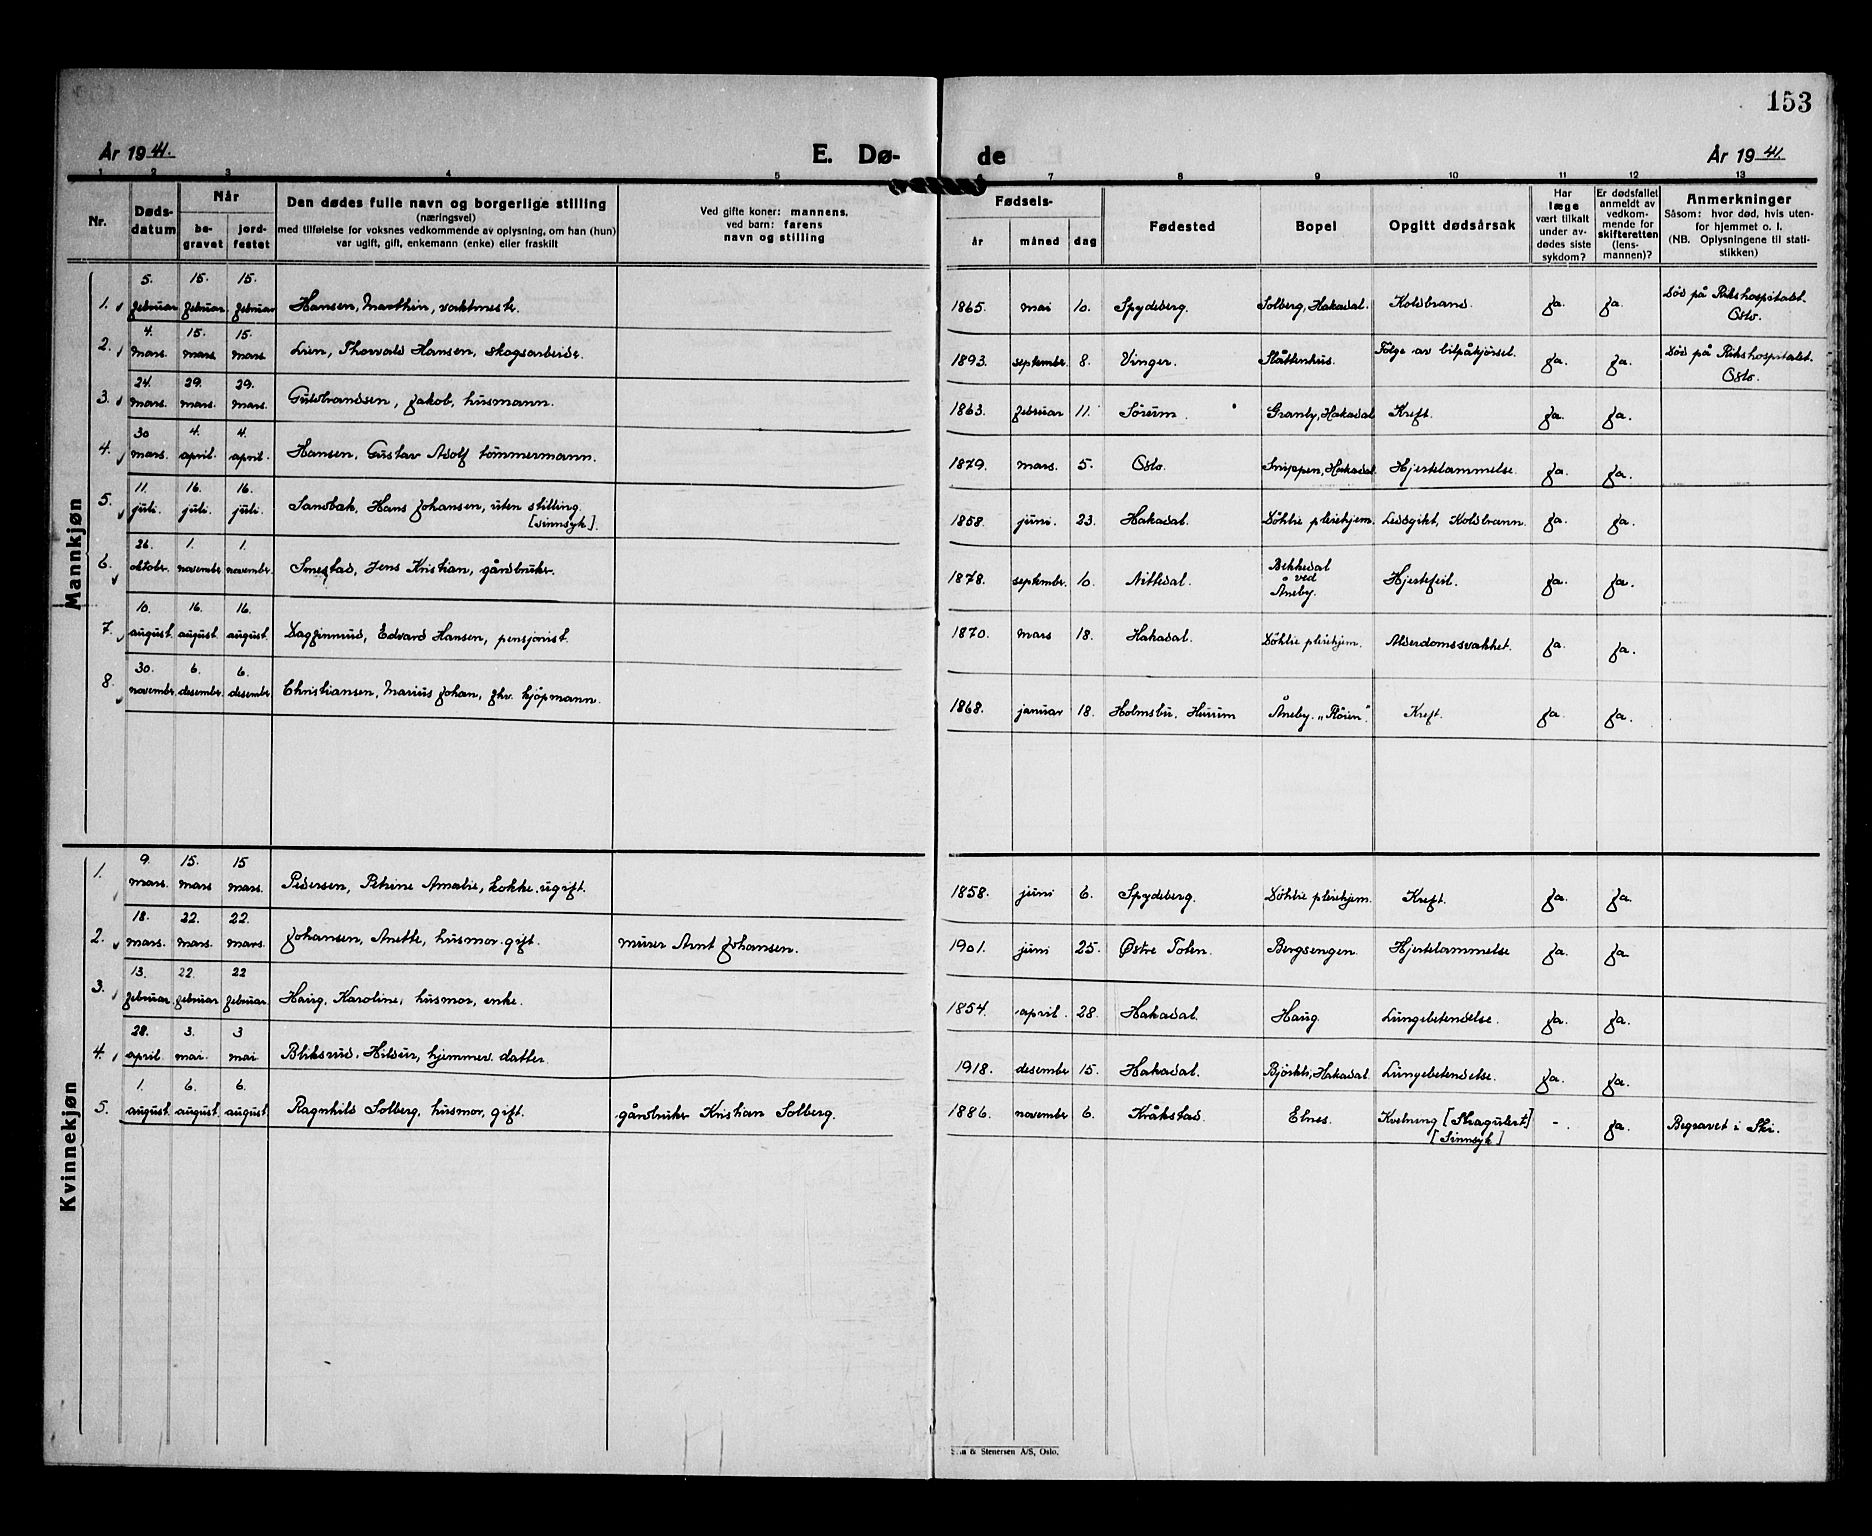 153
År 1941.
E. Dø-
de
År 1941.
1 2 3 4 5 7 8 9 10 11 12 13
Nr.
Døds-
datum
Når
be-
gravet
jord-
festet
Den dødes fulle navn og borgerlige stilling
(næringsvei)
med tilføielse for voksnes vedkommende av oplysning, om han (hun)
var ugift, gift, enkemann (enke) eller fraskilt
Ved gifte koner: mannens,
ved barn: farens
navn og stilling
Fødsels-
år måned dag
Fødested
Bopel
Opgitt dødsårsak
Har
læge
vært tilkalt
under av-
dødes siste
sykdom?
Er dødsfallet
anmeldt av
vedkom-
mende for
skifteretten
(lens-
mannen)?
Anmerkninger
Såsom: hvor død, hvis uten-
for hjemmet o. l.
(NB. Oplysningene til stati-
stikken)
Mannkjøn
1. 5. februar 15. februar 15. februar Hansen, Marthin, vaktmestr. 1865. mai 10. Spydeberg. Solberg, Hakadal. Koldbrand. Ja. Ja. Død på Rikshospitalet.
Oslo.
2. 4. mars. 15. mars. 15. mars. Lien, Thorvald Hansen, skogsarbeider. 1893. september. 8. Vinger. Slåttenhus. Følge av bilpåkjørsel. Ja. Ja. Død på Rikshospitalet.
Oslo.
3. 24. mars. 29. mars. 29. mars. Guldbrandsen, Jakob, husmann. 1863. februar 11. Sørum. Granby, Hakadal Kreft. Ja. Ja.
4. 30 mars. 4. april. 4. april. Hansen, Gustav Adolf tømmermann. 1879. mars. 5. Oslo. Snippen, Hakadal. Hjertelammelse. Ja. Ja.
5. 11. juli. 16. juli. 16. juli. Sandbak, Hans Johansen, uten stilling.
[Sinnsyk]. 1858. juni. 23. Hakadal. Døhlie pleiehjem. Leddgikt, Koldbrann. Ja. Ja.
6. 26. oktober. 1. november. 1. november. Smestad, Jens Kristian, gårdbruker. 1878. september. 10. Nittedal. Bekkedal
ved
Åneby. Hjertefeil. Ja. Ja.
7. 10. august. 16. august. 16. august. Dagfinrud, Edvard Hansen, pensjonist. 1870. mars 18. Hakadal. Døhlie pleiehjem. Alderdomssvakhet. Ja. Ja.
8. 30. november. 6. desember. 6. desember Christiansen, Marius Johan, fhv. kjøpmann. 1868. januar 18. Holmsbu, Hurum Åneby. "Roien". Kreft. Ja. Ja.
Kvinnekjøn
1. 9. mars. 15. mars 15 mars. Pedersen, Petrine Amalie, kokke. ugift. 1858. juni 6. Spydeberg. Døhlie pleiehjem. Kreft. Ja. Ja.
2. 18. mars. 22. mars. 22. mars. Johansen, Anette, husmor. gift. murer Arnt Johansen. 1901. juni 25. Østre Toten. Bergsengen. Hjertelammelse Ja. Ja.
3. 13. februar. 22. februar 22 februar. Haug, Karoline, husmor, enke. 1854. april. 28. Hakadal. Haug. Lungebetendelse. Ja. Ja.
4. 28. april. 3. mai. 3 mai Bliksrud, Hildur, hjemmev. datter. 1918. desember 15. Hakadal. Hakadal. Lungebetendelse. Ja. Ja.
5. 1. august. 6. august. 6. august. Ragnhild Solberg, husmor, gift. gårdbruker Kristian Solberg. 1886. november 6. Kråkstad. Elnes. Kvelning [Stragulert]
[Sinnsyk] -. Ja. Begravet i Ski.
& Stenersen A/S, Oslo.